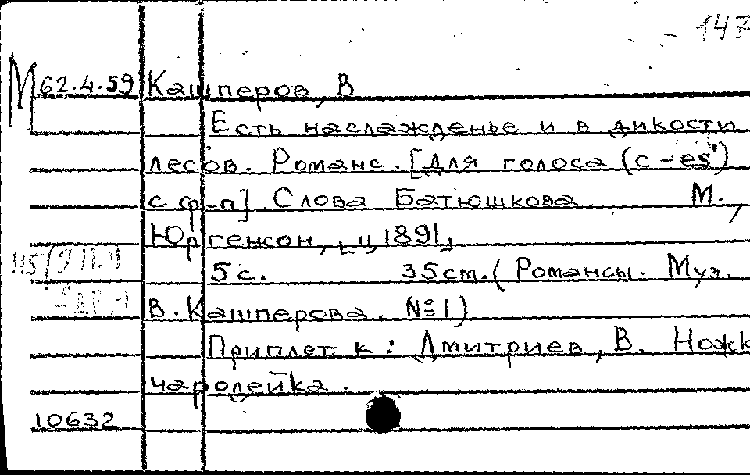 147
М 62.4.59 Кашперов, В
Есть наслажденье и в дикости
лесов. Романс. [Для голоса (с - es")
с ф-п] Слова Батюшкова М.,
Юргенсон, [ц 1891]
5 с. 35 см. (Романсы. Муз.
В. Кашперова. №1)
Приплет к: Дмитриев, В. Ножк
чародейка.
10632